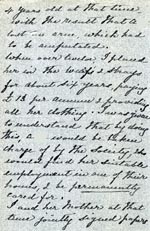 4 years old at that time
with the result that a
lost — arm, which had
to be amputated.
When over twelve I placed
her in the Waifs & Strays
for about six years, paying
£13 per annum & providing
all her clothing. I was given
to understand that by doing
this a — would be taken
charge of by the Society, &
women find her suitable
employment in one of their
homes, & be permanently
cared for.
I and her Mother at that
time jointly signed papers